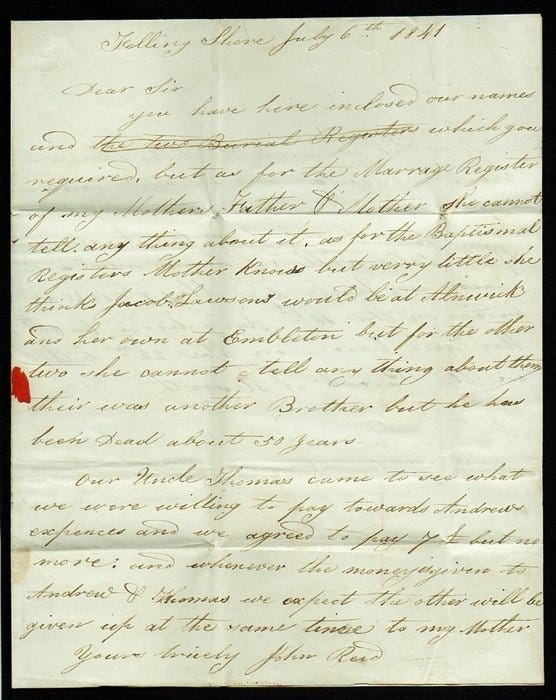 Felling Shore July 6th 1841
Dear Sir
you have hire inclosed our names
and the two Burial Registers which you
required, but as for the Marrage Register
of my Mothers Father & Mother she cannot
tell any thing about it, as for the Baptismal
Registers Mother Knows but verry little she
think Jacob Lawsons would be at Alnwick
and her own at Embleton but for the other
two she cannot tell any thing about them
their was another Brother but he has
been Dead about 50 years
Our Uncle Thomas came to see what
we were willing to pay towards Andrews
expences and we agreed to pay 7 £ but no
more: and whenever the money is given to
Andrew & Thomas we expect the other will be
given up at the same time to my Mother
Yours truely John Reed